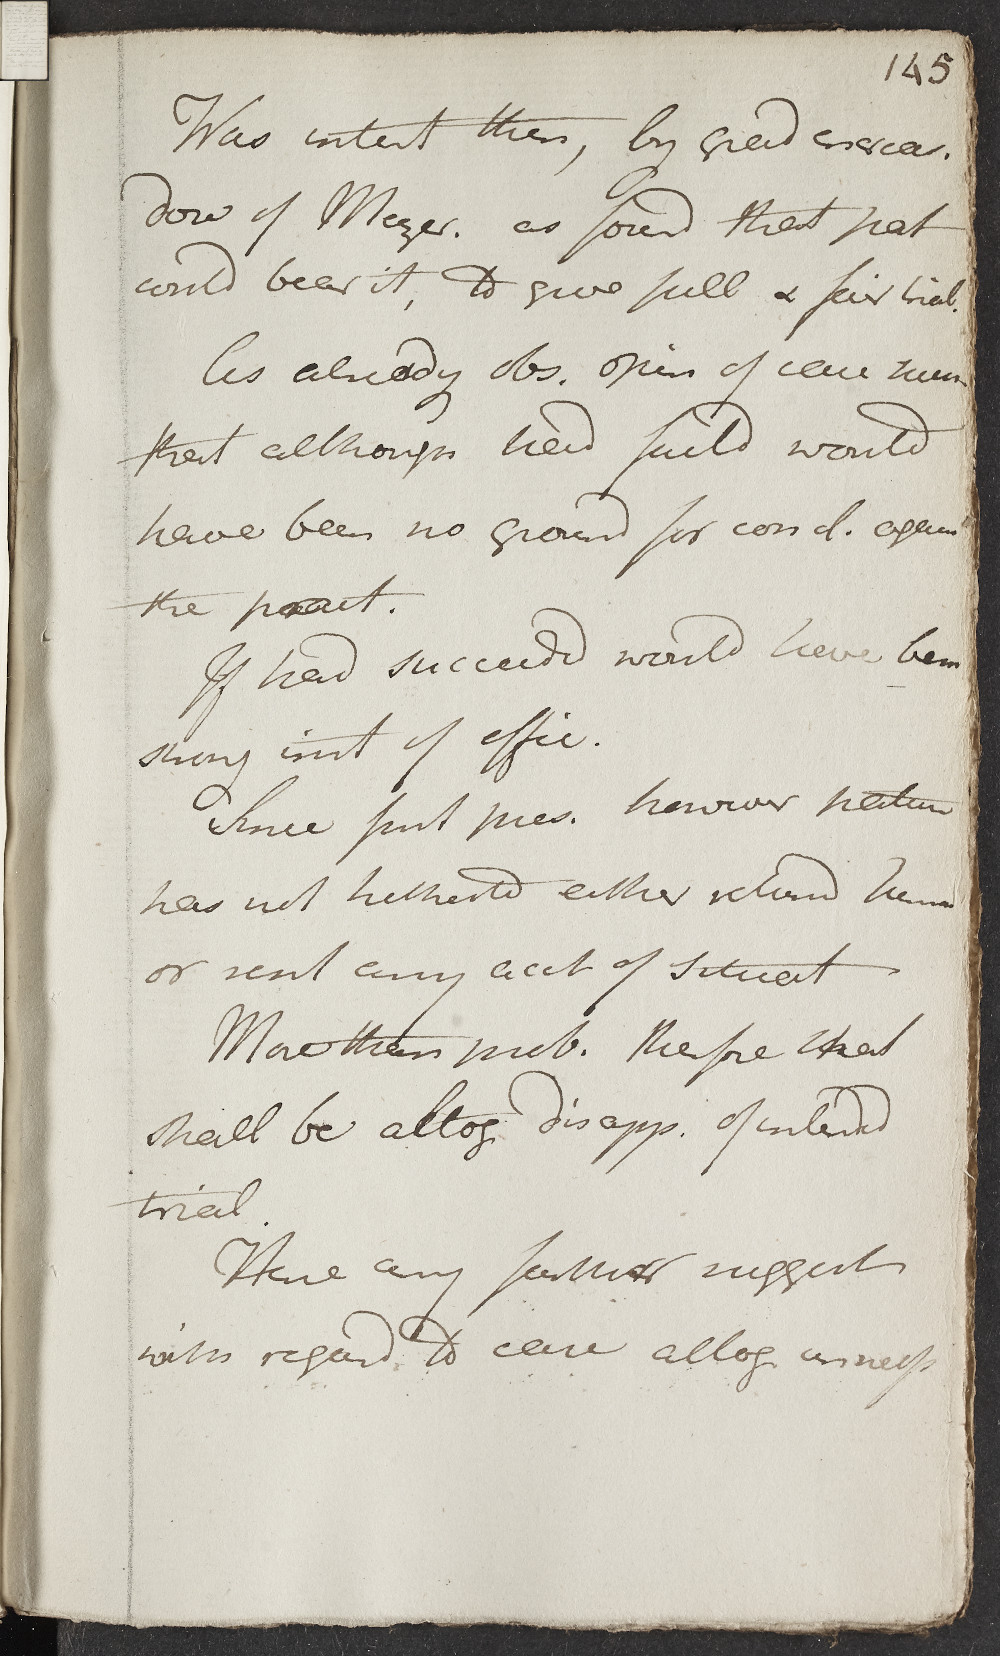 145
Was intent then, by grad increas.
dose of Mezer. as found that pat
could bear it, to give full & fair trial.
As already obs. opin of case such
that although had faild would
have been no ground for concl. again
the pract.
If had succeedd would have been
strong inst of effic.
Since first pres. however patien
has not hitherto either returnd
or sent any acct of situat
More than prob. therfore that
shall be altog disapp. of intended
trial.
Have any further suggest
with regard to case altog unness